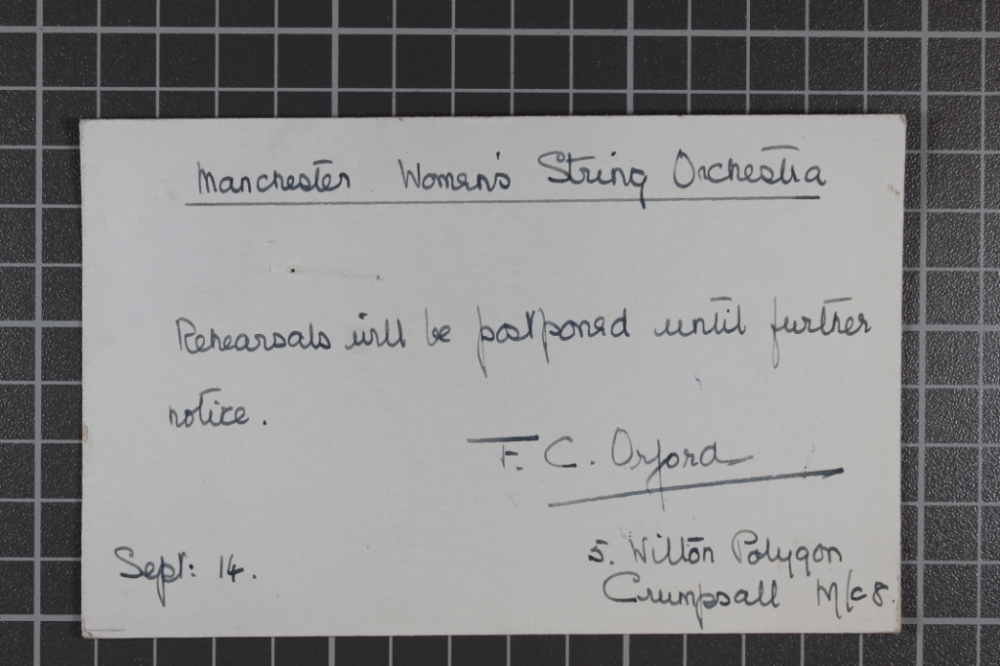 Manchester Women's String Orchestra
Rehearsals will be postponed until further
notice.
F. C. Orford
Sept: 14.
5. Wilton Polygon
Crumpsall M/c 8.